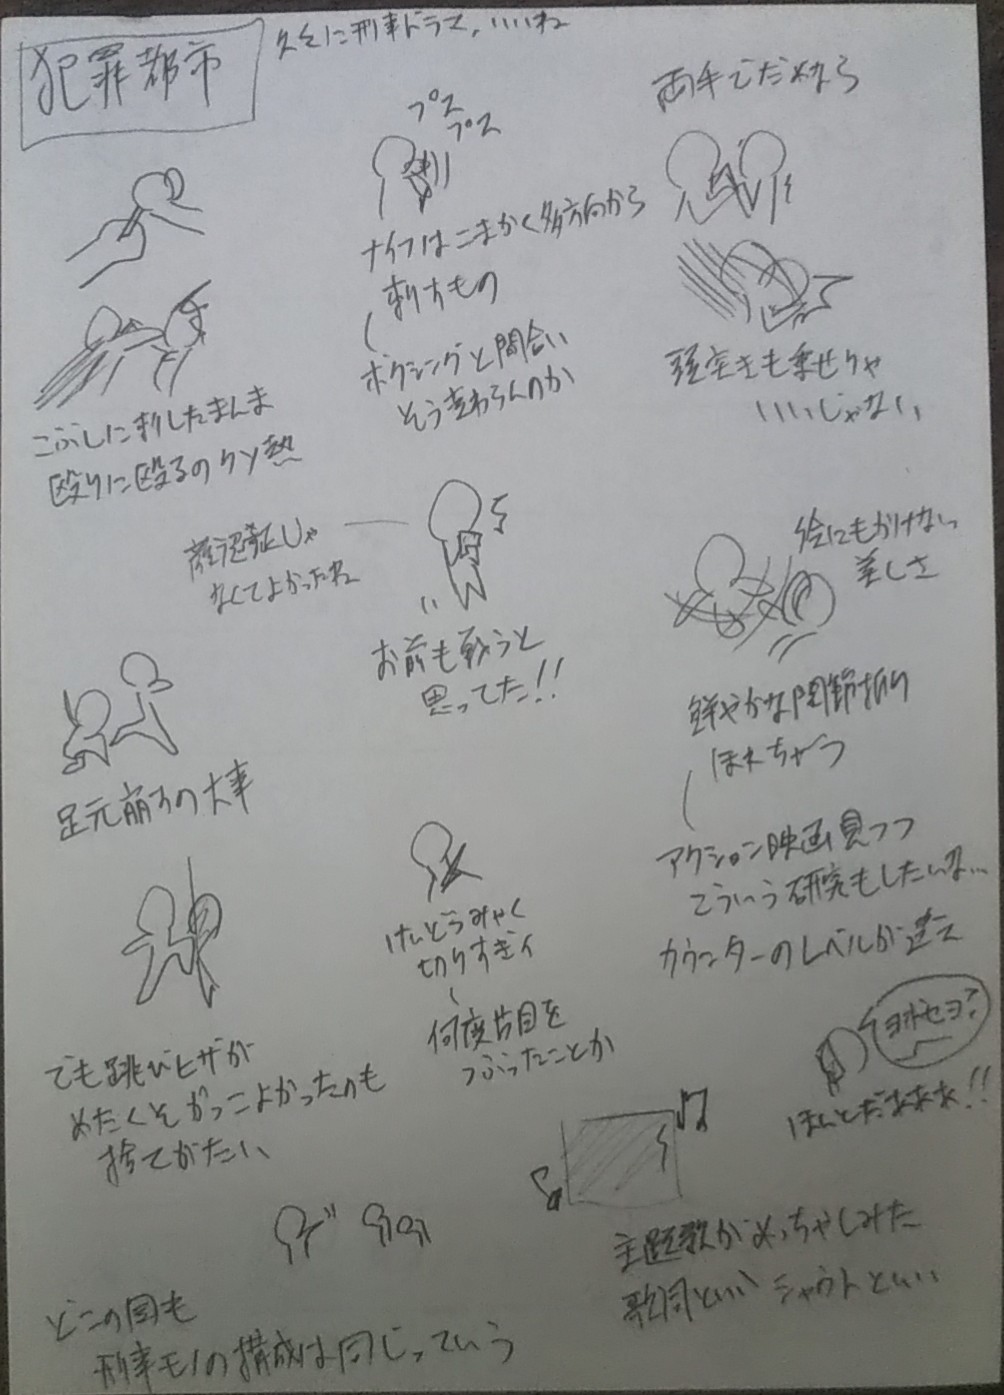 犯罪都市
久々に刑事ドラマ、いいね
プス
プス
両手でだめなら
ナイフはこまかく多方向から
刺すもの
ボクシングと間合い
そう変わらんのか
頭突きも乗せりゃ
いいじゃない
こぶしに刺したまんま
殴りに殴るのクソ熱
認証じゃ
なくてよかったね
お前も戦うと
思ってた!!
絵にもかけない
美しさ
鮮やかな関節折り
ほれちゃう
足元崩すの大事
アクション映画見つつ
こういう研究もしたいな…
カウンターのレベルが違え
けいどうみゃく
切りすぎィ
何度片目を
つぶったことか
でも跳びヒザが
めたくそかっこよかったのも
捨てがたい
ヨボセヨ?
ほんとだぁぁぁ!!
主題歌がめっちゃしみた
歌詞といい シャウトといい
どこの国も
刑事モノの構成は同じっていう